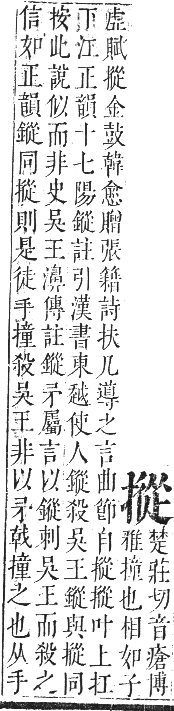 摐
楚莊切音瘡博
雅撞也相如子
虛賦摐金鼓韓愈贈張籍詩扶几導之言曲節自摐摐叶上扛
下江正韻十七陽鏦註引漢書東越使人鏦殺吳王鏦與摐同
按此說似而非史吳王濞傳註鏦矛屬言以鏦刺吳王而殺之
信如正韻鏦同摐則是徒手撞殺吳王非以矛戟撞之也从手